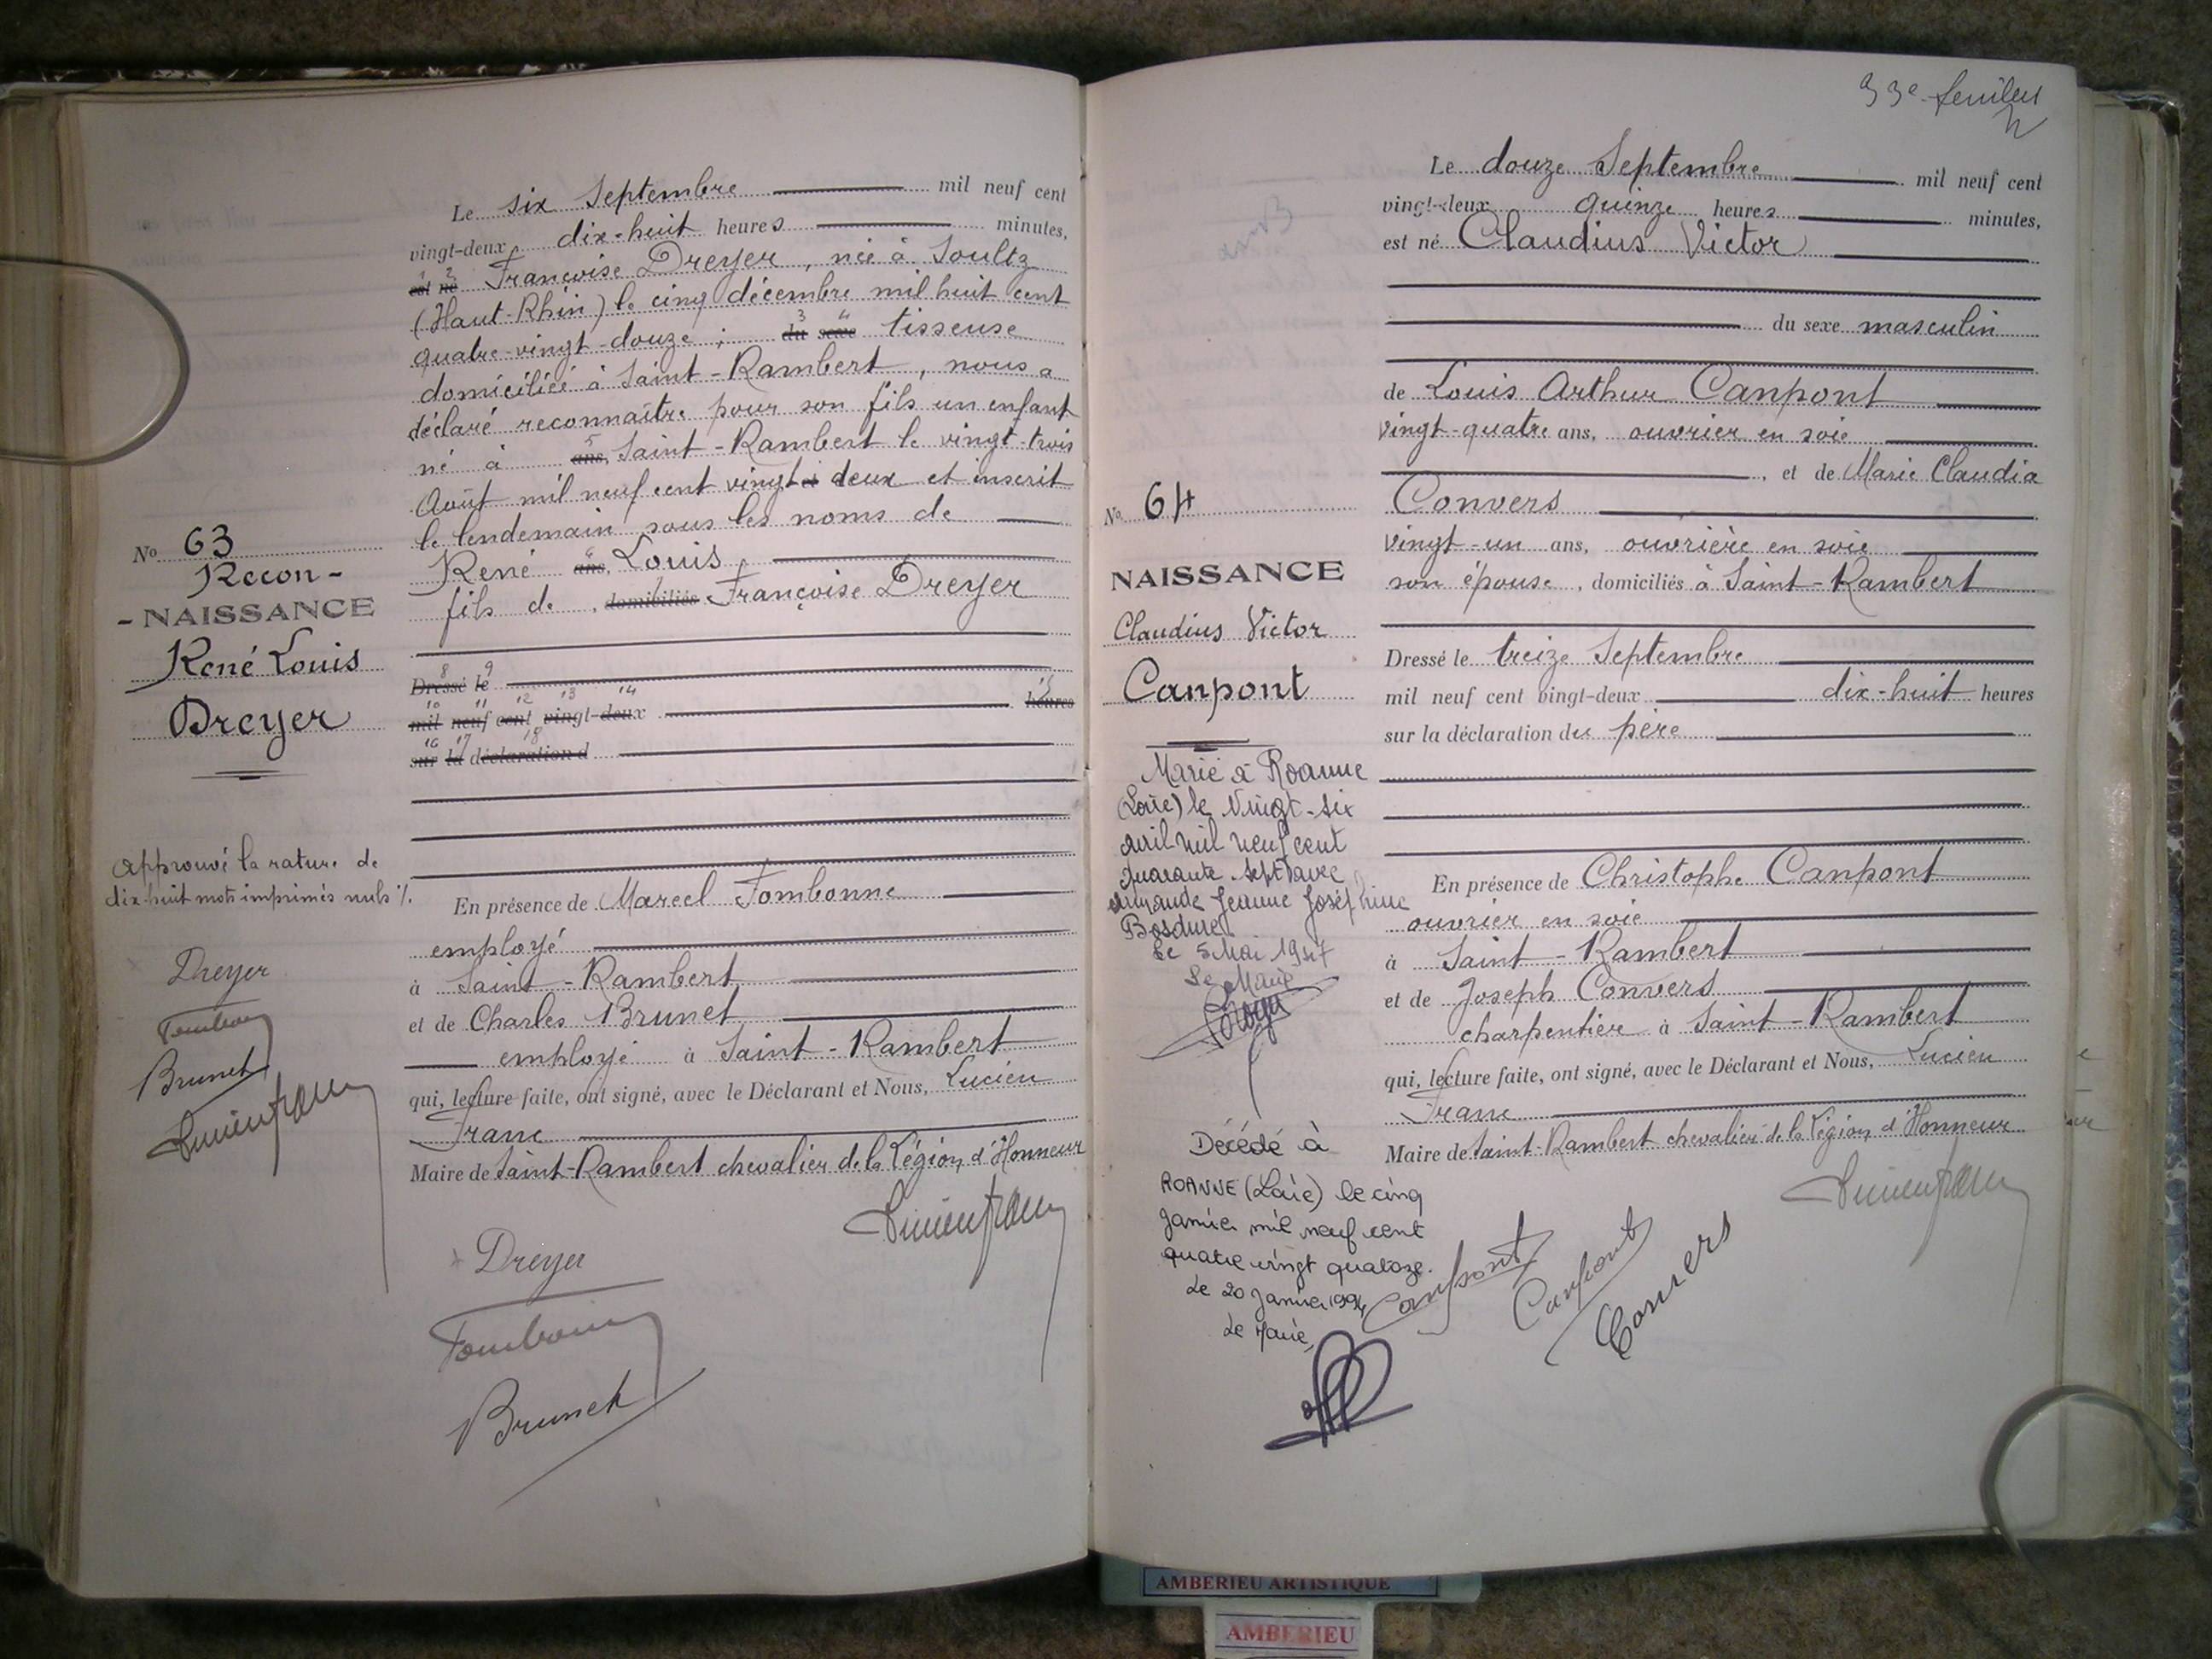 Le six Septembre mil neuf cent
vingt-deux dix-huit heures minutes,
1 2
est né Françoise Dreyer, née à Soultz
(Haut-Rhin) le cinq décembre mil huit cent
3 4
quatre-vingt-douze ; du sexe tisseuse
domiciliée à Saint-Rambert, nous a
déclaré reconnaître pour son fils un enfant
5
né à ans, Saint-Rambert le vingt-trois
Août mil neuf cent vingt deux et inscrit
le lendemain sous les noms de
6
René ans, Louis
7
fils de , domiciliés Françoise Dreyer
8 9
Dressé le
10 11 12 13 14 15
mil neuf cent vingt-deux heures
16 17 18
sur la déclaration d
En présence de Marcel Tombonne
employé
à Saint-Rambert
et de Charles Brunet
employé à Saint-Rambert
qui, lecture faite, ont signé, avec le Déclarant et Nous, Lucien
Franc
Maire de Saint-Rambert chevalier de la Légion d'Honneur
Dreyer
Brunet
No 63
Recon-
-NAISSANCE
René Louis
Dreyer
Approuvé la rature de
dix-huit mots imprimés nuls
Dreyer
Brunet
33e feuillet
Le douze Septembre mil neuf cent
vingt-deux quinze heures minutes,
est né Claudius Victor
du sexe masculin
de Louis Arthur Canpont
vingt-quatre ans, ouvrier en soie
, et de Marie Claudia
Convers
vingt-un ans, ouvrière en soie
son épouse, domiciliés à Saint-Rambert
Dressé le treize Septembre
mil neuf cent vingt-deux dix-huit heures
sur la déclaration du père
En présence de Christophe Canpont
ouvrier en soie
à Saint-Rambert
et de Joseph Convers
charpentier à Saint-Rambert
qui, lecture faite, ont signé, avec le Déclarant et Nous, Lucien
Franc
Maire de Saint-Rambert chevalier de la Légion d'Honneur
Canpont
Canpont
Convers
No 64
NAISSANCE
Claudius Victor
Canpont
Marié à Roanne
(Loire) le Vingt-six
avril mil neuf cent
quarante-sept avec
Jeanne Joséphine
Le 5 Mai 1947
Le Maire
Décédé à
ROANNE (Loire) le cinq
janvier mil neuf cent
quatre vingt quatorze.
Le 20 Janvier 1994
Le Maire,
AMBERIEU ARTISTIQUE
AMBERIEU